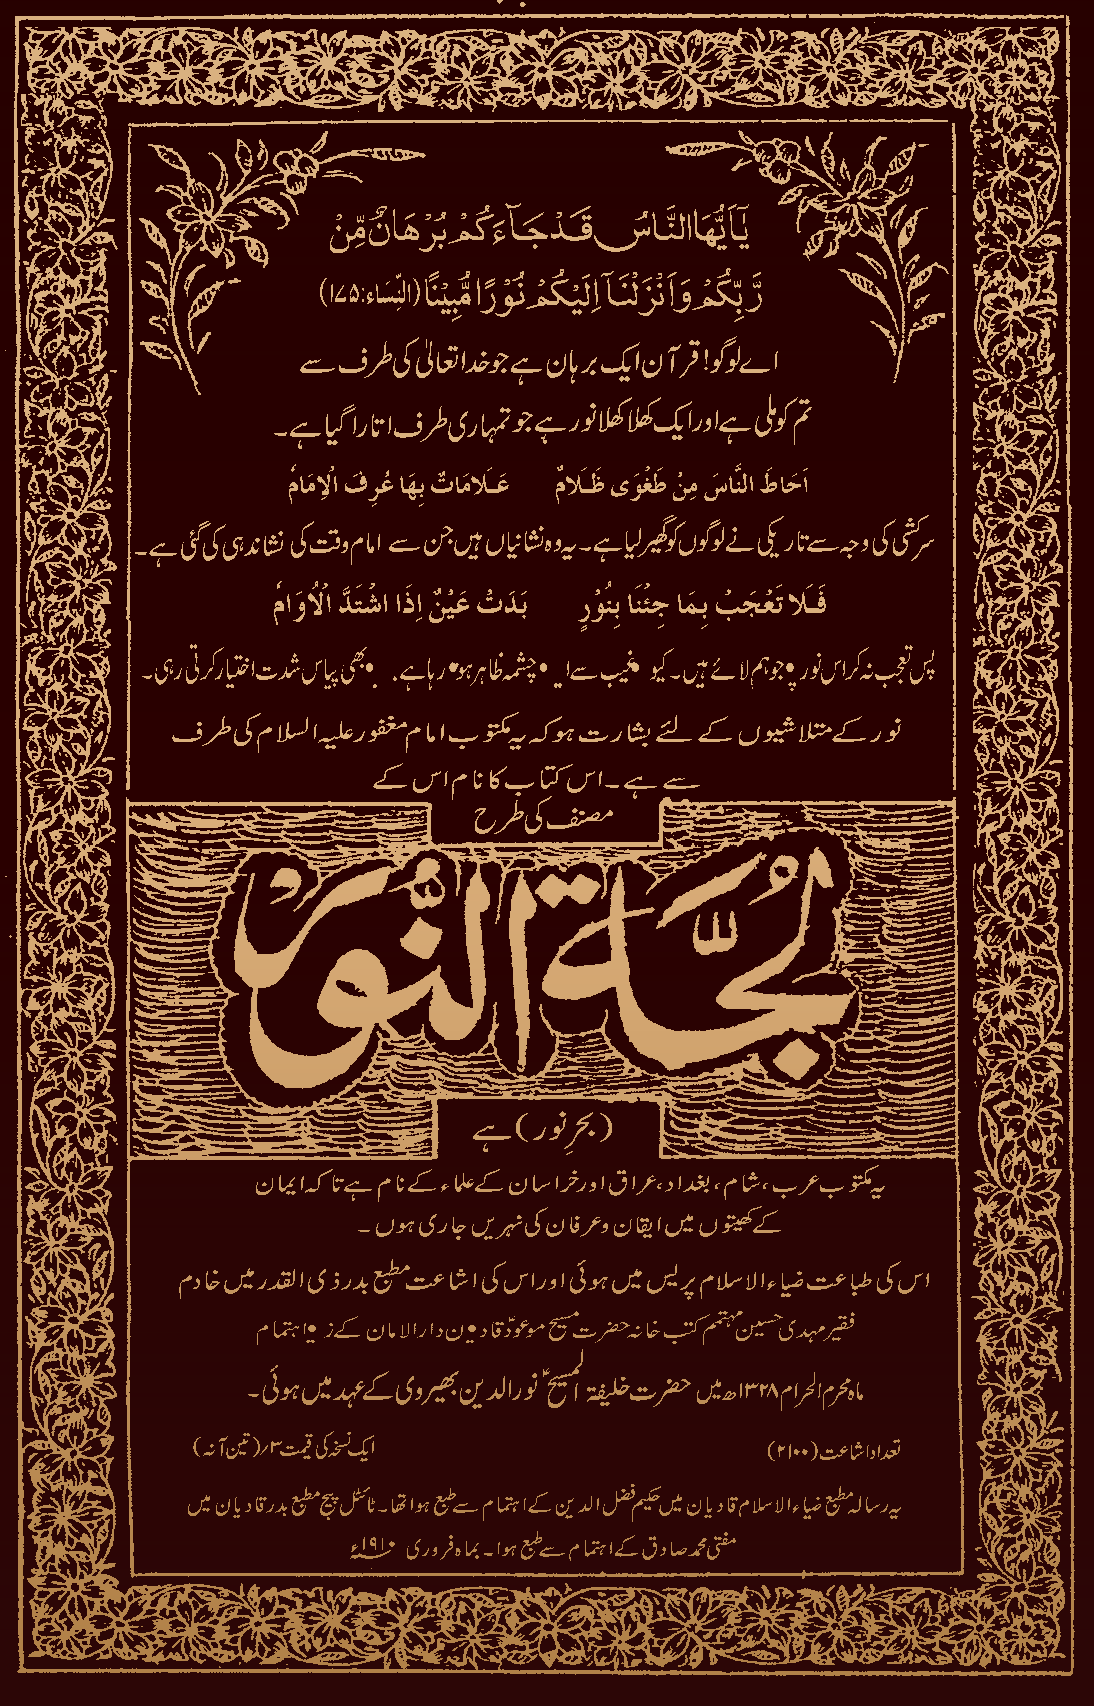 يٰۤاَيُّهَا النَّاسُ قَدْ جَآءَكُمْ بُرْهَانٌ مِّنْ
رَّبِّكُمْ وَاَنْزَلْنَاۤ اِلَيْكُمْ نُوْرًا مُّبِيْنًا (النّساء:۱۷۵)
اے لوگو! قرآن ایک برہان ہے جو خدا تعالیٰ کی طرف سے
تم کو ملی ہے اور ایک کھلا کھلا نور ہے جو تمہاری طرف اتارا گیا ہے۔
اَحَاطَ النَّاسَ مِنْ طَغْوَى ظَلَامٌ عَلَامَاتٌ بِهَا عُرِفَ الْاِمَامُ
سرکشی کی وجہ سے تاریکی نے لوگوں کو گھیر لیا ہے۔ یہ وہ نشانیاں ہیں جن سے امام وقت کی نشاندہی کی گئی ہے۔
فَلَا تَعْجَبْ بِمَا جِئْنَا بِنُوْرٍ بَدَتْ عَيْنٌ اِذَا اشْتَدَّ الْاُوَامُ
پس تعجب نہ کر اس نور پر جو ہم لائے ہیں۔ غیب سے چشمہ ظاہر ہو رہا ہے۔ بھی پیاس شدت اختیار کرتی رہی۔
نور کے متلاشیوں کے لئے بشارت ہو کہ یہ مکتوب امام مغفور علیہ السلام کی طرف
سے ہے۔ اس کتاب کا نام اس کے
مصنف کی طرح
لُجَّةُ النُّور
(بحرِ نور) ہے
یہ مکتوب عرب، شام، بغداد، عراق اور خراسان کے علماء کے نام ہے تا کہ ایمان
کے کھیتوں میں ایقان و عرفان کی نہریں جاری ہوں۔
اس کی طباعت ضیاء الاسلام پریس میں ہوئی اور اس کی اشاعت مطبع بدر ذی القدر میں خادم
فقیر مہدی حسین مہتمم کتب خانہ حضرت مسیح موعودؑ قادیان دارالامان کے زیر اہتمام
ماہ محرم الحرام ۱۳۲۸ھ میں حضرت خلیفۃ المسیحؑ نورالدین بھیروی کے عہد میں ہوئی۔
تعداد اشاعت (۲۱۰۰) ایک نسخہ کی قیمت ۳؍ (تین آنہ)
یہ رسالہ مطبع ضیاء الاسلام قادیان میں حکیم فضل الدین کے اہتمام سے طبع ہوا تھا۔ ٹائٹل پیج مطبع بدر قادیان میں
مفتی محمد صادق کے اہتمام سے طبع ہوا۔ بماہ فروری ۱۹۱۰ء